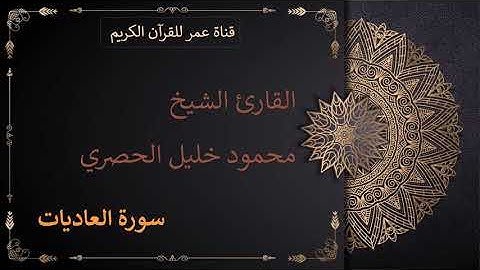 قناة عمر للقرآن الكريم
القارئ الشيخ
محمود خليل الحصري
سورة العاديات